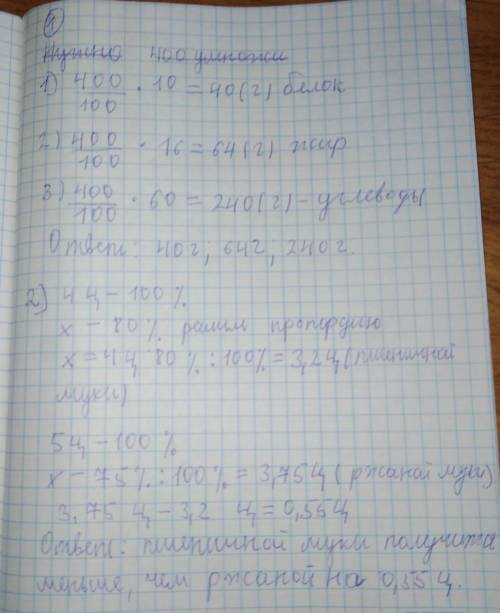 1
Нужно 400 умножи
1) 400/100 · 10 = 40(г) белок
2) 400/100 · 16 = 64(г) жир
3) 400/100 · 60 = 240(г) - углеводы
Ответ: 40г, 64г, 240г.
2) 4ц - 100%
х - 80% решим пропордию
х = 4ц 80% : 100% = 3,2ц (пшеничной
муки)
5ц - 100%
х - 75% : 100% = 3,75ц (ржаной муки)
3,75 ц - 3,2 ц = 0,55ц
Ответ: пшеничной муки получится
меньше, чем ржаной на 0,55ц.